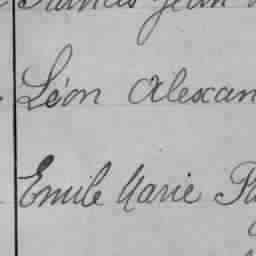 Jean
Léon Alexan
Emile Marie